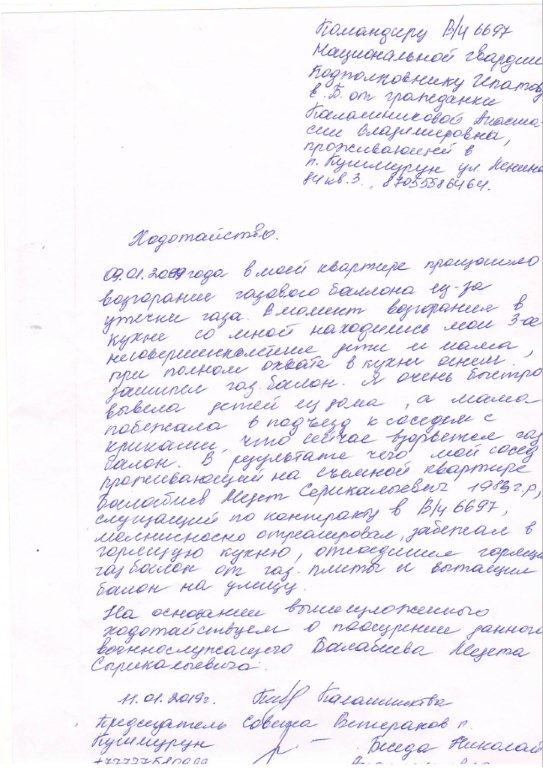 Командиру В/ч 6697
Национальной гвардии
Подполковнику Ипатову
Е.Б. от гражданки
Калашниковой Анаста-
сии Владимировны,
проживающей в
п. Кушмурун ул. Ленина
84 кв. 3., 87055586464.
Ходотайство.
09.01.2019 года в моей квартире произошло
возгорание газового баллона из-за
утечки газа. В момент возгорания в
кухне со мной находились мои 3-ое
несовершеннолетние дети и мама,
при полном охвате в кухни огнем.
зашипел газ. балон. Я очень быстро
вывела детей из дома, а мама
побежала в подъезд к соседем с
криками, что сейчас взорвется газ
балон. В результате чего мой сосед
проживающий на съемной квартире
Серикалыевич 198 г.р,
служащий по контракту в В/ч 6697,
молниеносно отреагировал, забежал в
горящую кухню, отсоединил горящий
газ балон от газ. плиты и вытащил
балон на улицу.
На основании вышеизложенного
ходотайствуем о поощрение данного
военнослужащего Балабиева
Сырикалыевича.
11.01.2019г. Калашникова
Председатель Совета Ветеранов п.
Кушмурун Беседа Николай